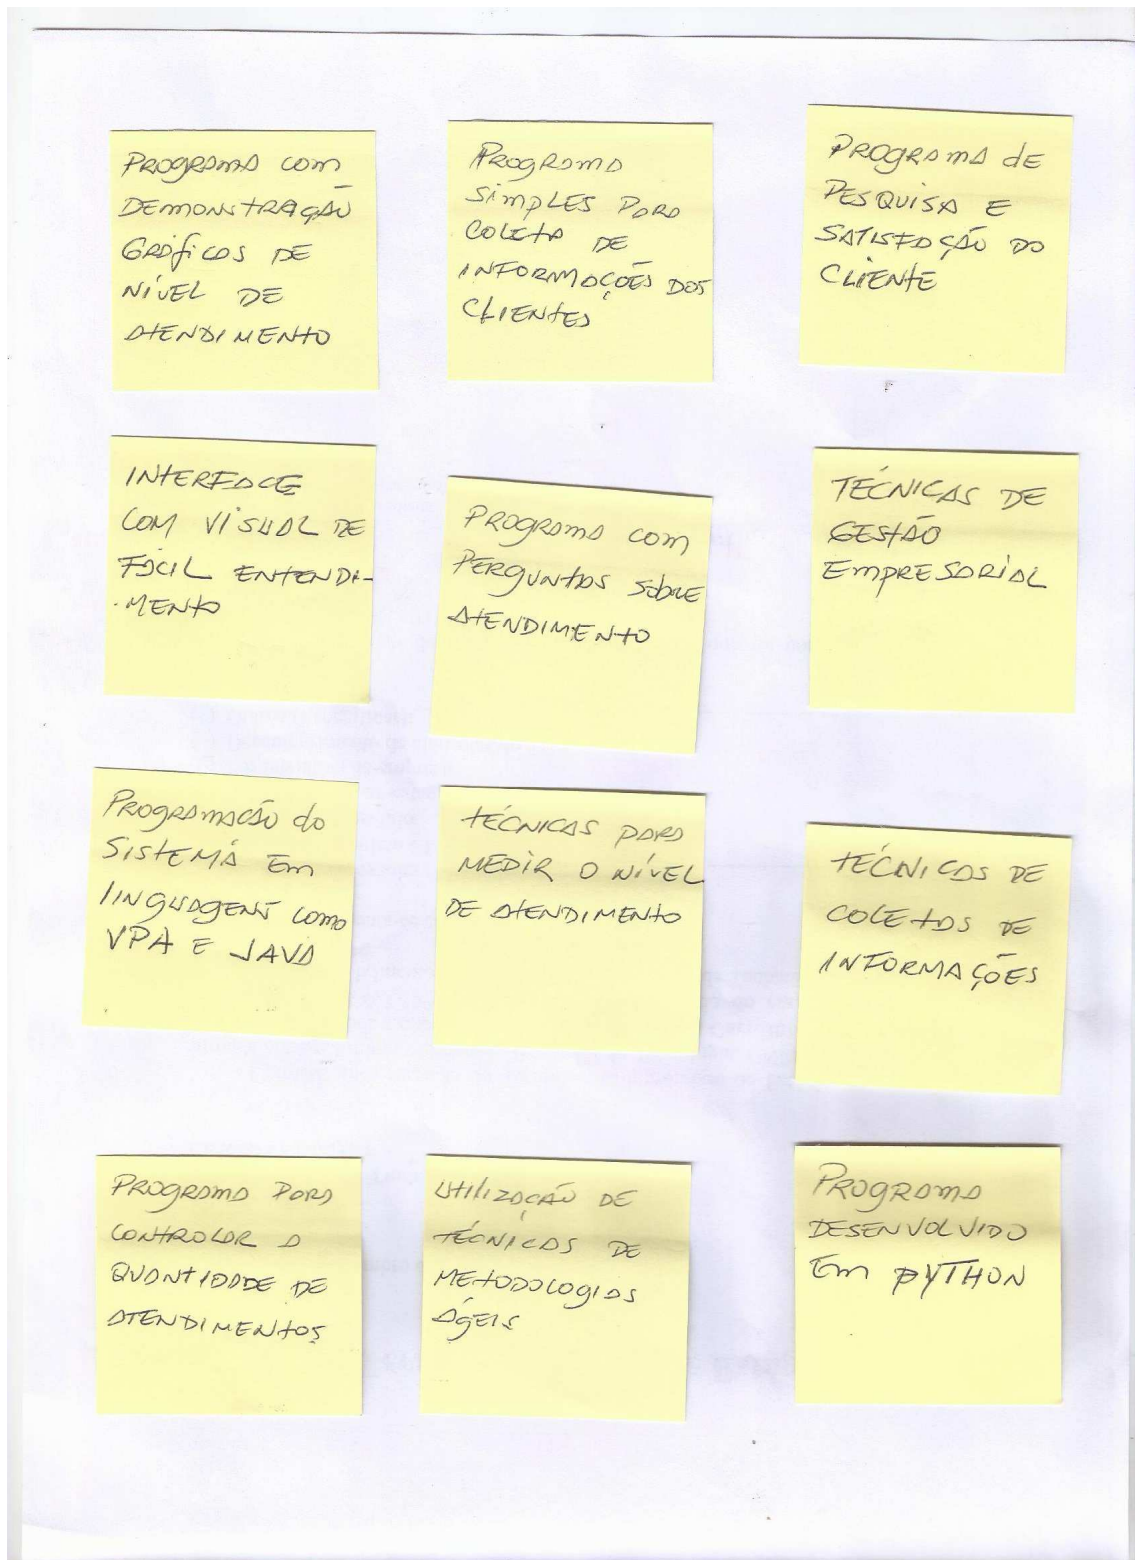 PROGRAMA COM
DEMONSTRAÇÃO
GRÁFICOS DE
NÍVEL DE
ATENDIMENTO
PROGRAMA
SIMPLES PARA
COLETA DE
INFORMAÇÕES DOS
CLIENTES
PROGRAMA DE
PESQUISA E
SATISFAÇÃO DO
CLIENTE
INTERFACE
COM VISUAL DE
FÁCIL ENTENDI-
MENTO
PROGRAMA COM
PERGUNTAS SOBRE
ATENDIMENTO
TÉCNICAS DE
GESTÃO
EMPRESARIAL
PROGRAMAÇÃO do
SISTEMA Em
linguagens como
VPA E JAVA
TÉCNICAS PARA
MEDIR O NÍVEL
DE ATENDIMENTO
TÉCNICAS DE
COLETAS DE
INFORMAÇÕES
PROGRAMA PARA
CONTROLAR A
QUANTIDADE DE
ATENDIMENTOS
UTILIZAÇÃO DE
TÉCNICAS DE
METODOLOGIAS
ÁGEIS
PROGRAMA
DESENVOLVIDO
Em PYTHON